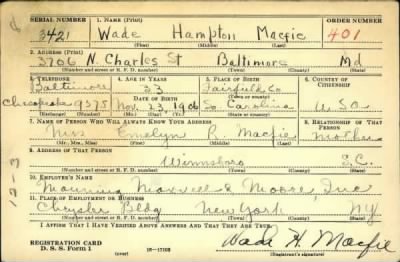 SERIAL NUMBER 1. NAME (Print) ORDER NUMBER
3421 Wade Hampton Macfie 401
(First) (Middle) (Last)
2. ADDRESS (Print)
3706 N. Charles St Baltimore Md
(Number and street or R. F. D. number) (Town) (County) (State)
3. TELEPHONE 4. AGE IN YEARS 5. PLACE OF BIRTH 6. COUNTRY OF CITIZENSHIP
Baltimore 33 Fairfield Co
DATE OF BIRTH
Chesapeake 9575 Nov. 23, 1906 So. Carolina U S A
(Exchange) (Number) (Mo.) (Day) (Yr.) (State or country)
7. NAME OF PERSON WHO WILL ALWAYS KNOW YOUR ADDRESS 8. RELATIONSHIP OF THAT PERSON
Mrs Emelyn R. Macfie Mother
(Mr., Mrs., Miss) (First) (Middle) (Last)
9. ADDRESS OF THAT PERSON
Winnsboro S.C.
(Number and street or R. F. D. number) (Town) (County) (State)
10. EMPLOYER'S NAME
Manning Maxwell & Moore, Inc
11. PLACE OF EMPLOYMENT OR BUSINESS
Chrysler Bldg New York NY
(Number and street or R. F. D. number) (Town) (County) (State)
I AFFIRM THAT I HAVE VERIFIED ABOVE ANSWERS AND THAT THEY ARE TRUE.
REGISTRATION CARD
D. S. S. Form 1 (over) 16-17105 Wade H. Macfie
(Registrant's signature)
12-3